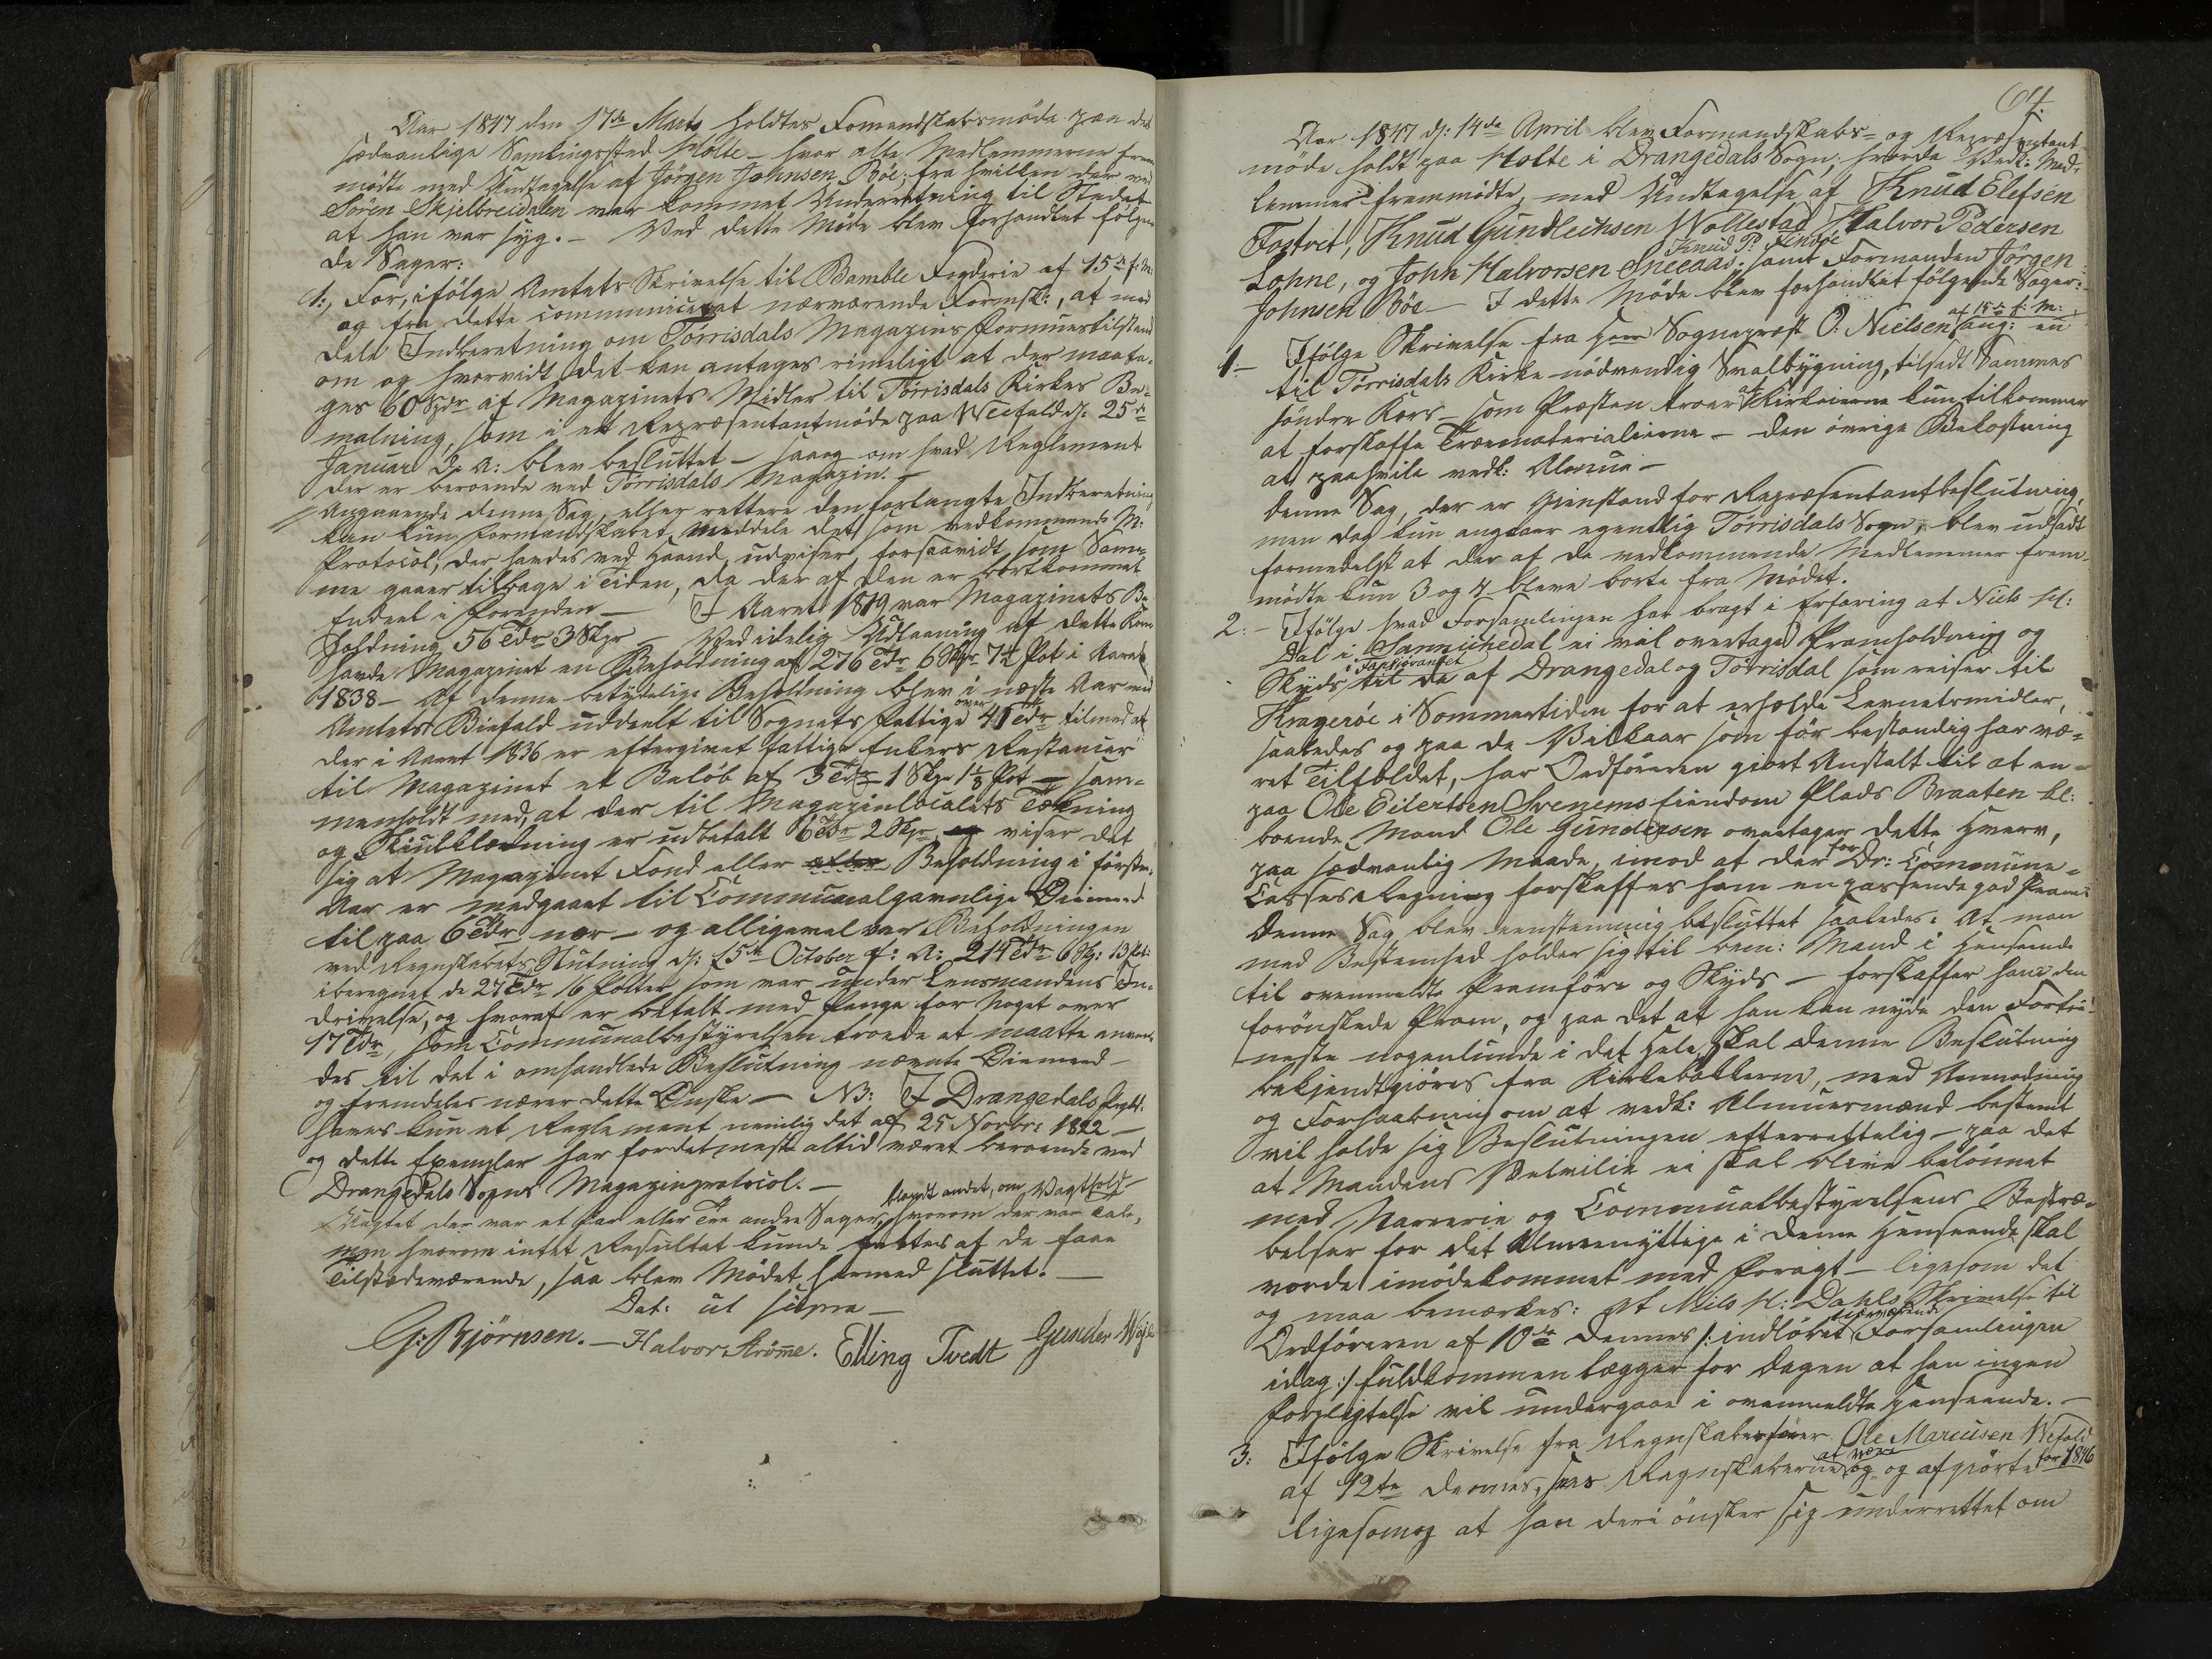 Aar 1847 den 17de Marts holdtes Fomandskabsmøde paa det
sædvanlige Samlingssted Holte – hvor alle Medlemmerne frem-
mødte med Undtagelse af Jörgen Johnsen Böe, fra hvilken der ved
Sören Skjelbreidalen var kommet Underretning til Stedet
at han var syg. – Ved dette Møde blev forhandlet følgen-
de Sager:
1:, For, ifölge Amtets Skrivelse til Bamble Fogderie af 15de f. M:
og fra dette communiceret nærværende Formsk:, at med-
dele Indberetning om Törrisdals Magazins Formuestilstand
om og hvorvidt det kan antages rimeligt at der maa ta-
ges 60 Spdr af Magazinets Midler til Törrisdals Kirkes Be-
malning, som i et Repræsentantmøde paa Weefald d: 25de
Januar d. A: blev besluttet – saa og om hvad Reglement
der er beroende ved Törrisdals Magazin. –
Angaaende denne Sag, eller rettere den forlangte Indberetning
kan kun Formandskabet meddele det som vedkommende M:
Protocol, der havdes ved Haand, udviser, forsaavidt som Sam-
me gaaer tilbage i Tiden, da der af den er bortkommet
Endeel i Forenden – I Aaret 1819 var Magazinets Be-
holdning 56 Tdr 3 Skpr – Ved idelig Udlaaning af dette Korn
havde Magazinet en Beholdning af 276 Tdr 6 Skpr 7½ Pot i Aaret
1838 – Af denne betydelige Beholdning blev i næste Aar med
Amtets Biefald uddeelt til Sognets Fattige over 41 Tdr tilmed at
der i Aaret 1836 er eftergivet fattige Enkers Restancer
til Magazinet et Beløb af 3 Tdr 1 Skp 1½ Pot – sam-
menholdt med, at der til Magazinlocalets Tækning
og Skudklædning er udbetalt 6 Tdr 2 Skp, viser det
sig at Magazinet Fond eller Beholdning i förste
Aar er medgaaet til Communalgavnlige Øiemed
til paa 6 Tdr nær – og alligevel var Beholdningen
ved Regnskabets Slutning d: 15de October f: A: 214 Tdr 6 Sk: 13 Pot:
iberegnet de 27 Tdr 16 Potter som var under Lensmandens In-
drivelse, og hvoraf er betalt med Penge for Noget over
17 Tdr, som Communalbestyrelsen troede at maatte anven-
des til det i omhandlede Beslutning nævnte Øiemed –
og fremdeles nærer dette Ønske – NB: I Drangedals Prgld:
haves kun et Reglement nemlig det af 25 Novbr: 1822 –
og dette Exemplar har fordetmeste altid været beroende ved
Drangedals Sogns Magazinprotocol. –
Uagtet der var et Par eller Tre andre Sager, blandt andet, om Vagthold – hvorom der var Tale,
men hvorom intet Resultat kunde fattes af de faae
Tilstedeværende, saa blev Mødet hermed sluttet. –
Dat: ut supra –
G: Björnsen. – Halvor Strömme. Elling Tvedt Gunder
64.
Aar 1847 d: 14de April blev Formandskabs- og Repræsentant-
møde holdt paa Holte i Drangedals Sogn; hvorda Vedk: Med-
lemmer fremmødte, med Undtagelse af Knud Elefsen
Tostvet, Knud Gundleihsen Wollestad, Halvor Pedersen
Lohne, og John Halvorsen Sneeaas, Knud P: samt Formanden Jörgen
Johnsen Böe – I dette Møde blev forhandlet følgende Sager:
1 – Ifölge Skrivelse fra Sognepræst O: Nielsen af 15de f: M: ang: en
til Törrisdals Kirke nødvendig Svalbygning, tilsadt Sammes
söndre Kors – som Præsten troer at Kirkeierne kun tilkommer
at forskaffe Træmaterialierne – den övrige Bekostning
at paahvile vedk: Almue –
Denne Sag, der er Gienstand for Repræsentantbeslutning,
men dog kun angaaer egentlig Törrisdals Sogn, blev udsadt
formedelst at der af de vedkommende Medlemmer frem-
mødte kun 3 og 4 bleve borte fra Mødet.
2: – Ifölge hvad Forsamlingen har bragt i Erfaring at Niels H:
Dal i Sannichedal ei vil overtage Pramholdning og
Skyds i Tarsjøvandet til de af Drangedal og Törrisdal som reiser til
Kragerøe i Sommertiden for at erholde Levnetsmidler,
saaledes og paa de Vilkaar som för bestandig har væ-
ret Tilfældet, har Ordføreren giort Anstalt til at en
paa Ole Eilertsen Svenems Eiendom Plads Braaten kl:
boende Mand Ole Gundersen overtager dette Hverv,
paa sædvanlig Maade, imod at der for Dr: Commune-
Casses Regning forskaffes ham en passende god Pram:
Denne Sag blev eenstemmig besluttet saaledes: At man
med Bestemthed holder sig til bem: Mand i Henseende
til ovenmeldte Pramføre og Skyds – forskaffer ham den
forönskede Pram, og paa det at han kan nyde den Forti-
neste nogenlunde i det Hele, skal denne Beslutning
bekjendtgiöres fra Kirkebakkerne, med Anmodning
og Forhaabning om at vedk: Almuesmænd bestemt
vil holde sig Beslutningen efterrettelig – paa det
at Mandens Velvilie ei skal blive belønnet
med Narrerie og Communalbestyrelsens Bestræ-
belser for det Almeennyttige i denne Henseende skal
vorde imödekommet med Foragt – ligesom det
og maa bemærkes: At Niels H: Dahls Skrivelse til
Ordføreren af 10de dennes /: indløbet nærværende Forsamlingen
idag :/ fuldkommen lægger for Dagen at han ingen
Forpligtelse vil undergaae i ovenmeldte Henseende. –
3: Ifölge Skrivelse fra Regnskabsfører Ole Marcusen Wefald
af 12te dennes, Regnskaberne at være og afgiörte for 1846
ligesom og at han deri önsker sig underrettet om